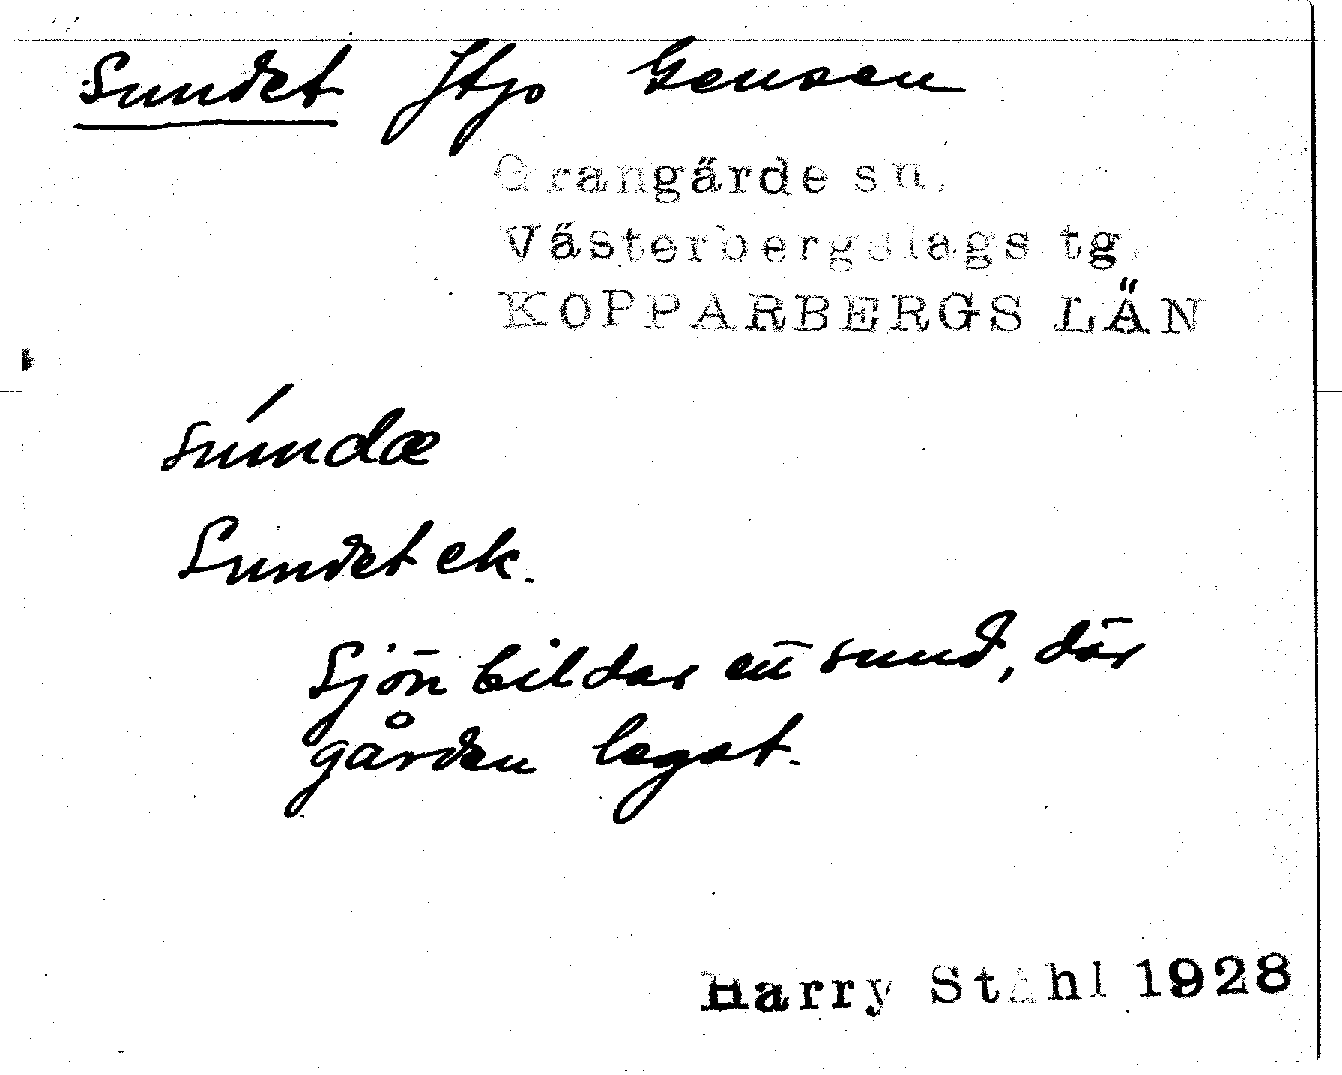 Sundet Jtjo Gensen
Grangärde sn.
Västerbergslags tg.
KOPPARBERGS LÄN
súndæ
Sundet ek.
Sjön bildar ett sund, där
gården legat.
Harry Ståhl 1928